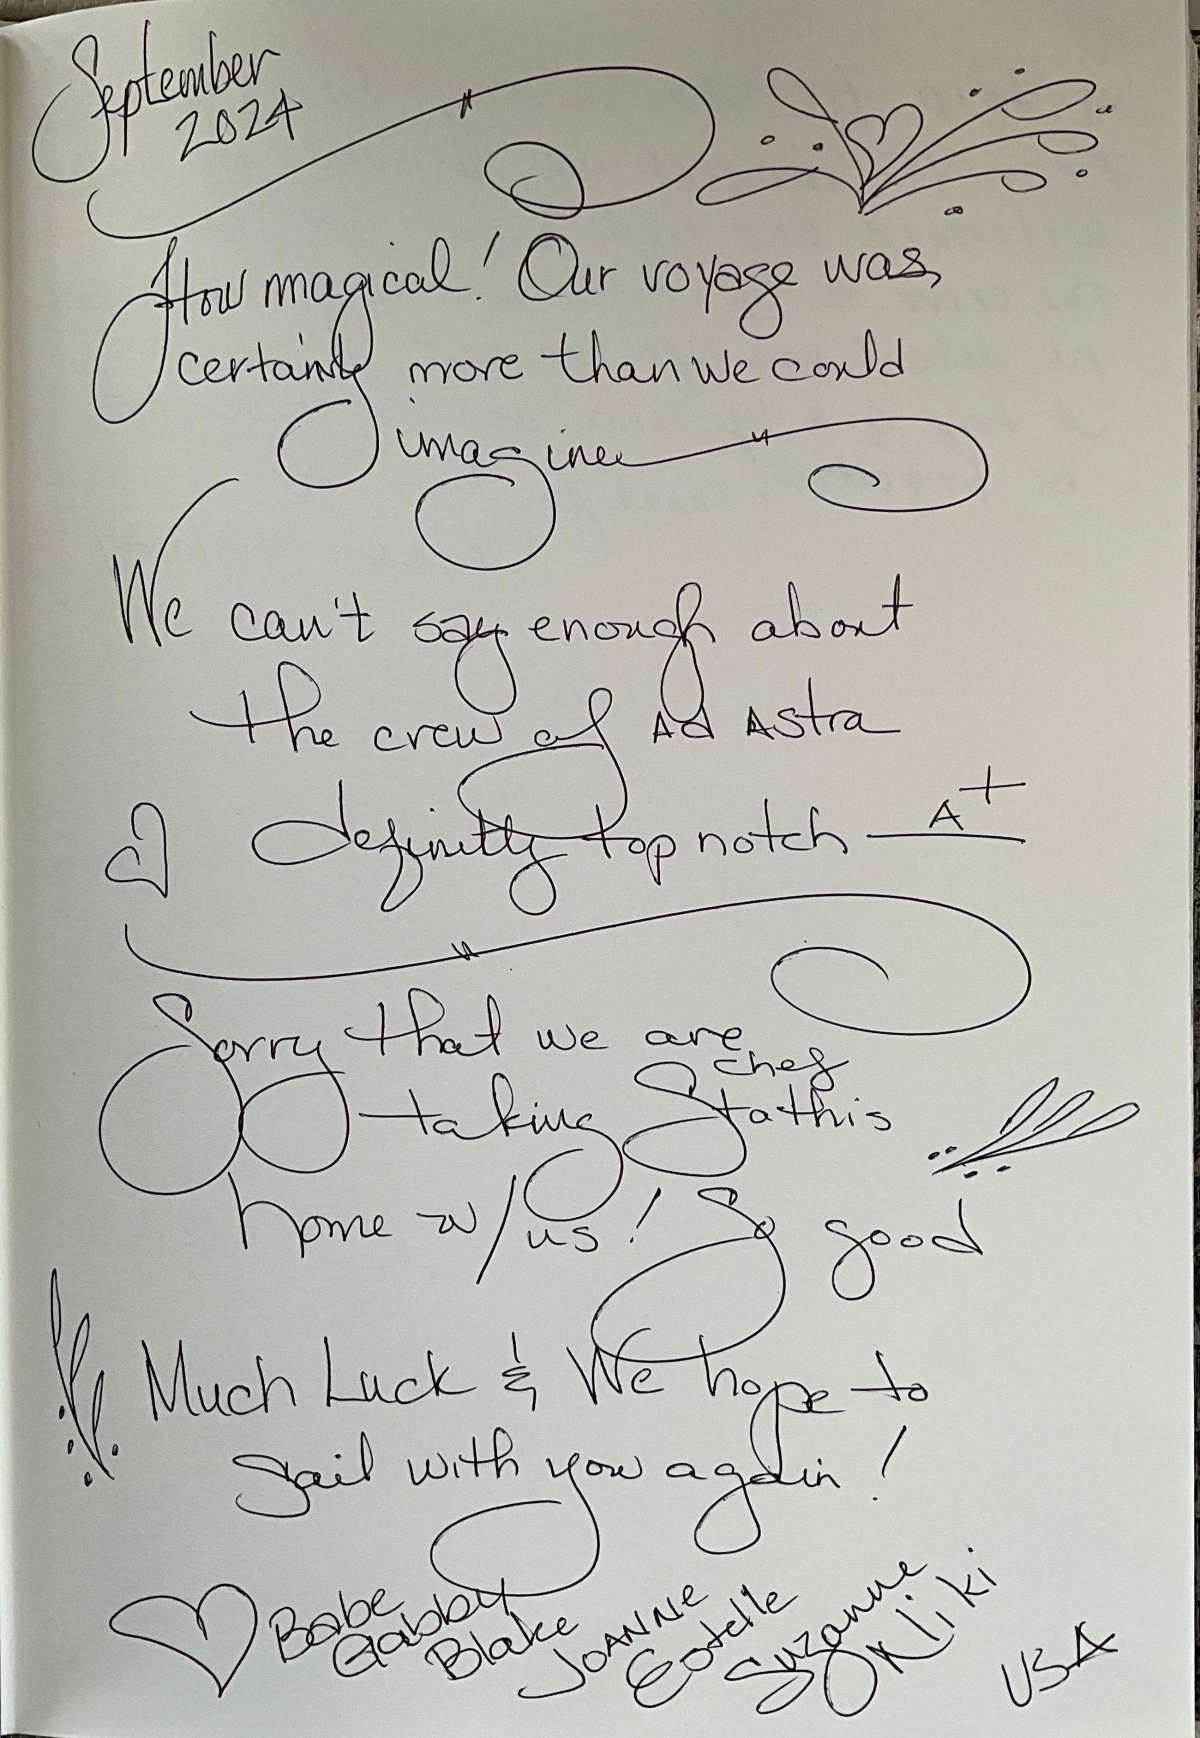 September
2024
How magical! Our voyage was,
certainly more than we could
imagine
We can't say enough about
the crew of Ad Astra
definitly top notch A+
Sorry that we are
taking chef Stathis
home w/us! So good
Much Luck & We hope to
sail with you again!
Babe
Gabby
Blake
JOANNE
Estelle
Suzanne
Niki
USA